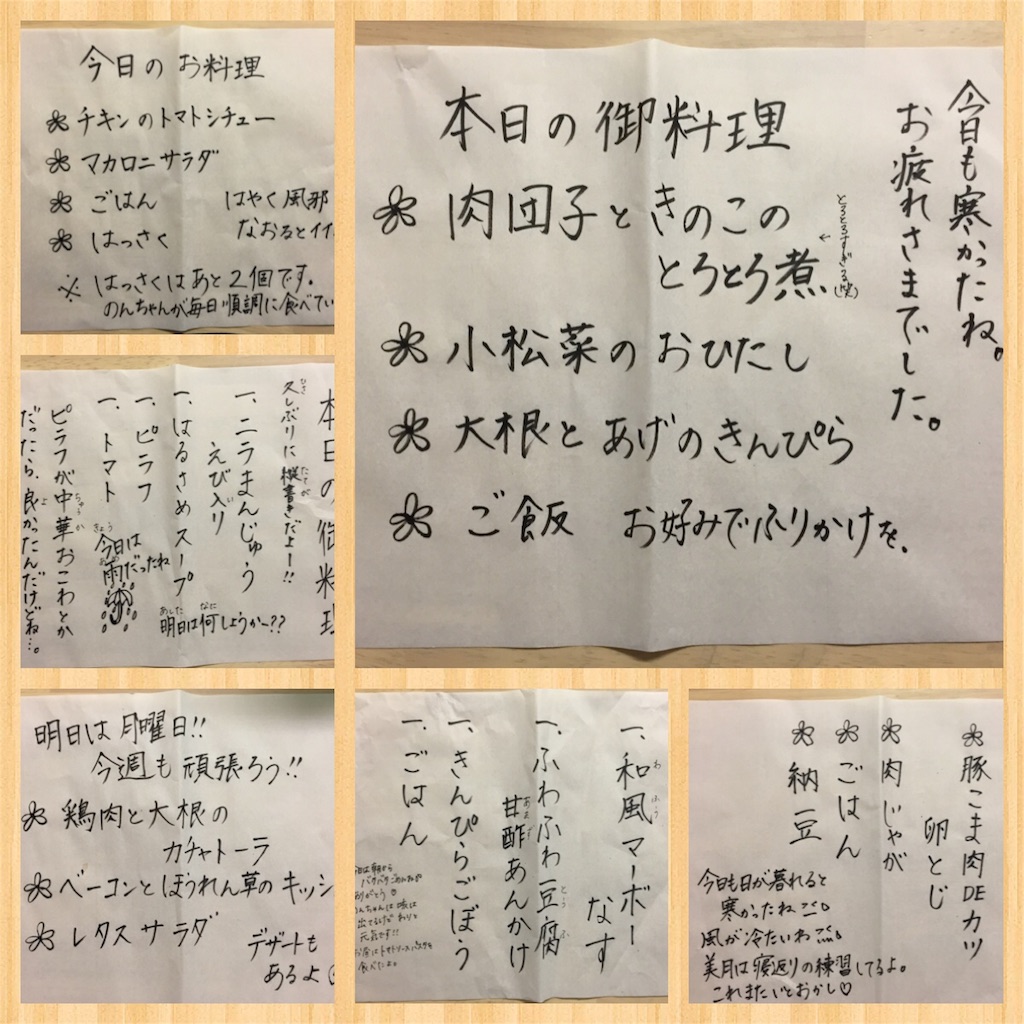 今日のお料理
チキンのトマトシチュー
マカロニサラダ
ごはん
はっさく
はやく風邪
なおるとイイ
※はっさくはあと2個です。
のんちゃんが毎日順調に食べてい
今日も寒かったね。
お疲れさまでした。
本日の御料理
肉団子ときのこの
とろとろ煮
←とろとろすぎる(笑)
小松菜のおひたし
大根とあげのきんぴら
ご飯 お好みでふりかけを。
本日の御料理
久しぶりに縦書きだよー!!
ひさ
たてが
一、ニラまんじゅう
えび入り
い
一、はるさめスープ
一、ピラフ
一、トマト
今日は
きょう
雨だったね
あめ
明日は何しようかー??
あした
なに
ピラフが中華おこわとか
ちゅうか
だったら、良かったんだけどね…。
よ
明日は月曜日!!
今週も頑張ろう!!
鶏肉と大根の
カチャトーラ
ベーコンとほうれん草のキッシ
レタスサラダ
デザートも
あるよ
一、和風マーボー
わふう
なす
一、ふわふわ豆腐
とうふ
甘酢あんかけ
あまず
一、きんぴらごぼう
一、ごはん
ありがとう
のんちゃんは咳は
出てるけどわりと
元気です!!
食べたよ。
豚こま肉DEカツ
卵とじ
肉じゃが
ごはん
納豆
今日も日が暮れると
寒かったね
風が冷たいわ
美月は寝返りの練習してるよ。
これまたいとおかし♡